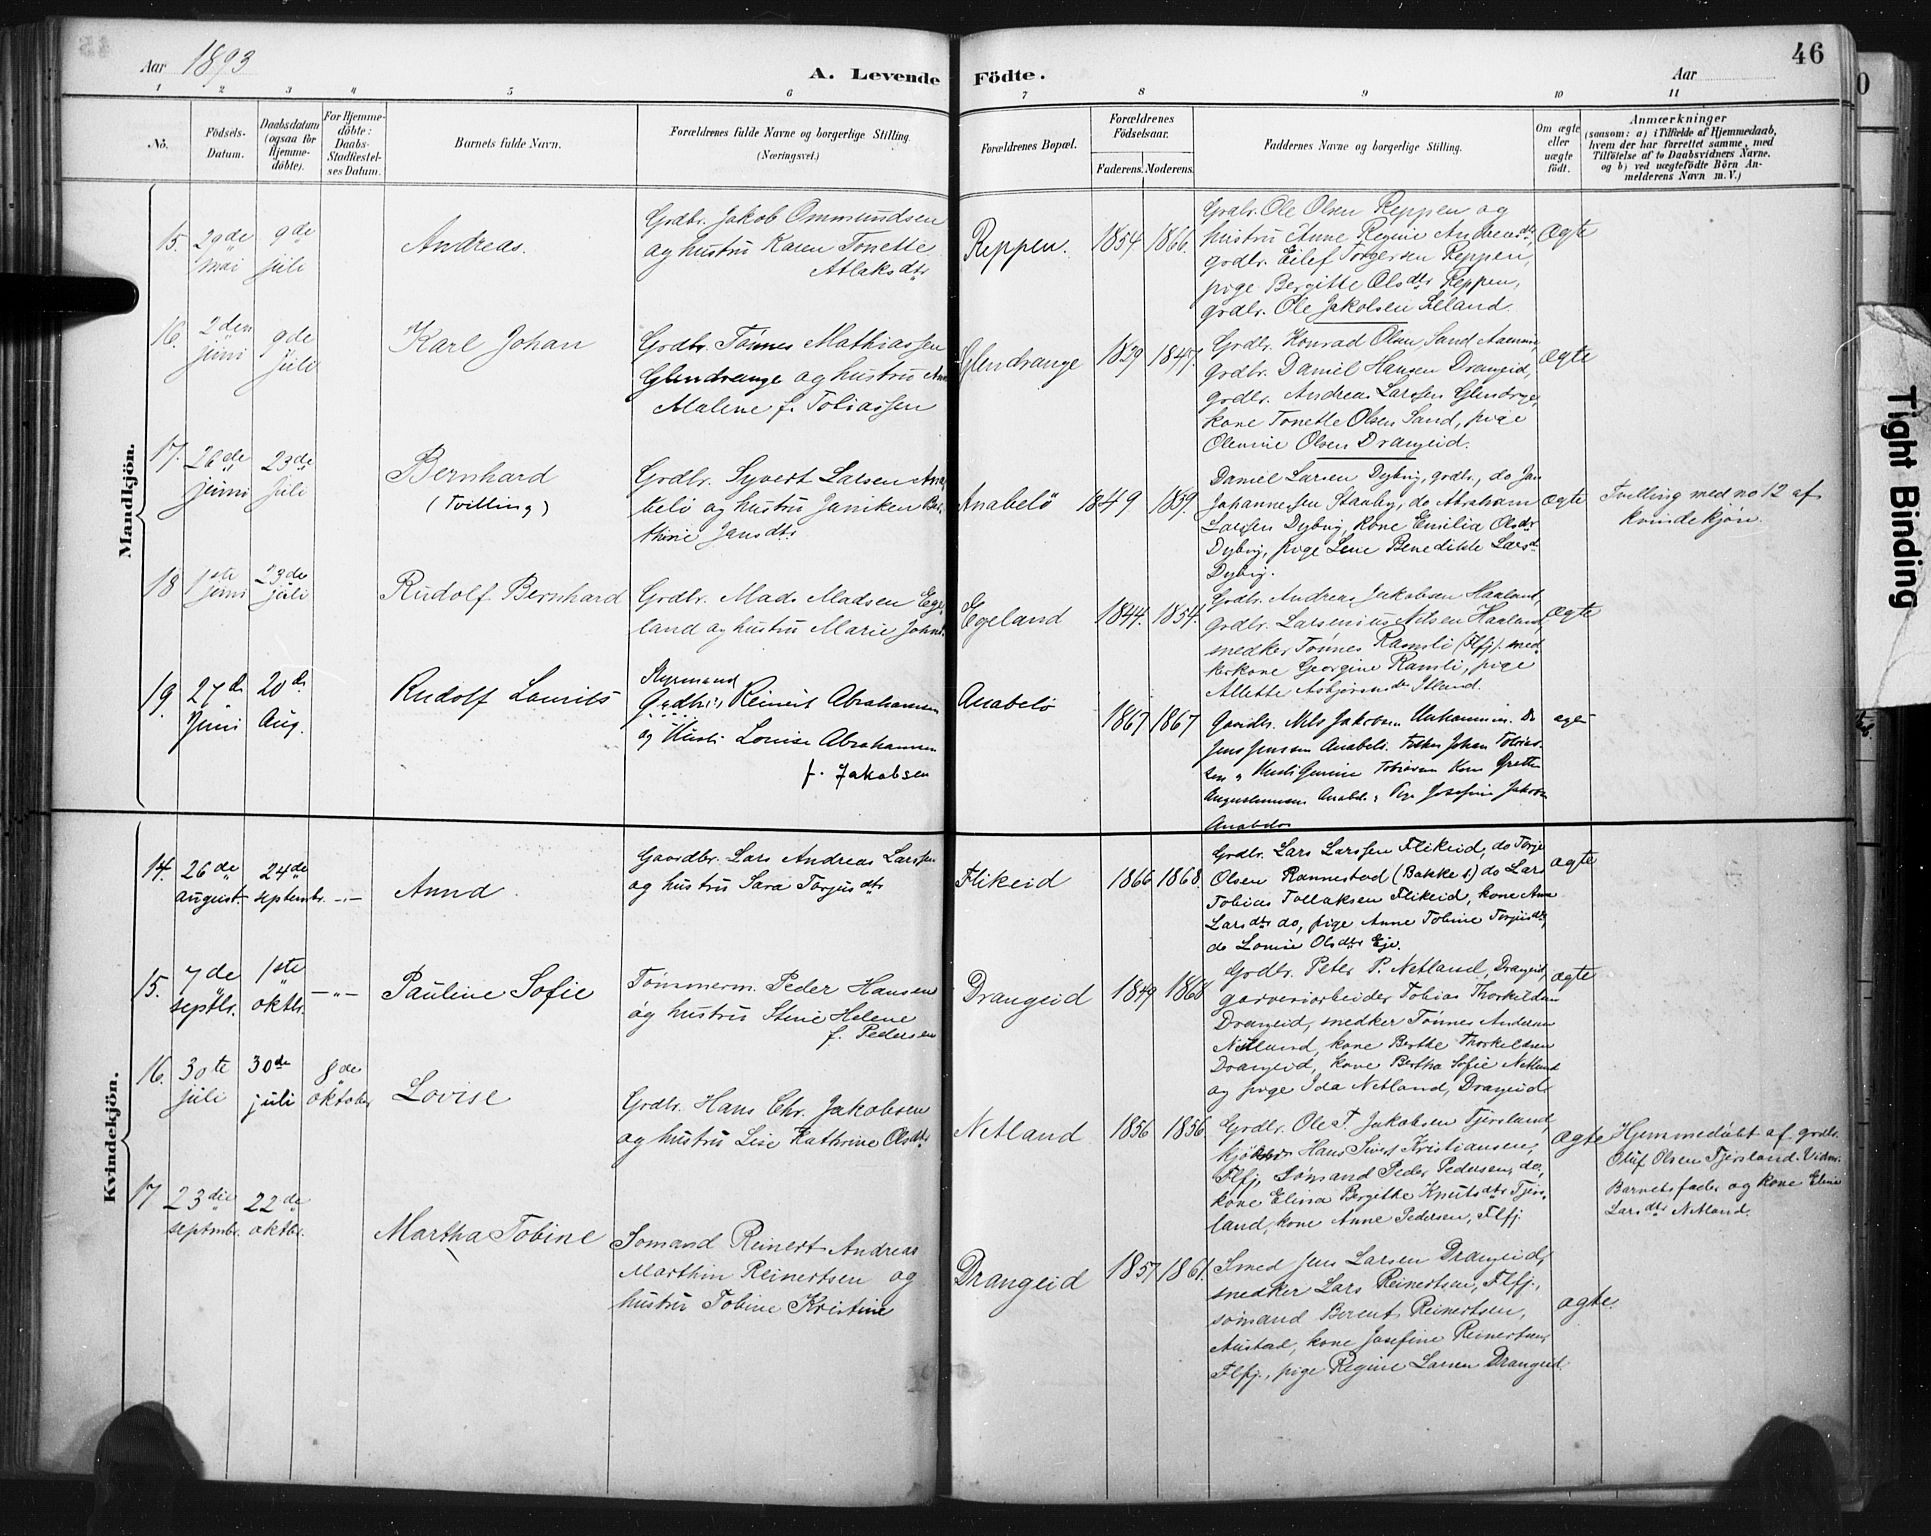 Aar 1893
A. Levende Födte.
Aar
46
1 2 3 4 5 6 7 8 9 10 11
No.
Födsels-Datum.
Daabsdatum (ogsaa for Hjemmedöbte).
For Hjemmedöbte: Daabs-Stadfæstelses Datum.
Barnets fulde Navn.
Forældrenes fulde Navne og borgerlige Stilling. (Næringsvei.)
Forældrenes Bopæl.
Forældrenes Födselsaar.
Faderens. Moderens.
Faddernes Navne og borgerlige Stilling.
Om ægte eller uægte födt.
Anmærkninger
(saasom: a) i Tilfælde af Hjemmedaab, hvem der har forrettet samme, med Tilföielse af to Daabsvidners Navne, og b) ved uægtefödte Börn Anmelderens Navn m. V.)
Mandkjön.
15. 29de mai 9de juli
Andreas.
Grdbr. Jakob Ommundsen
og hustru Karen Tonette
Atlaksdtr
Reppen. 1854 1866.
Grdbr. Ole Olsen Reppen og
hustru Anne Regine Andreasdtr,
grdbr. Eilef Torgersen Reppen,
pige Bergitte Olsdtr Reppen,
grdbr. Ole Jakobsen Leland.
ægte
16. 2den juni 9de Juli
Karl Johan
Grdbr. Tönnes Mathiassen
Glendrange og hustru
Malene f. Tobiassen
Glendrange 1839 1847.
Grdbr. Konrad Olsen Sand
grdbr. Daniel Hansen Drangeid,
grdbr. Andreas Larsen Glendrge,
kone Tonette Olsen Sand, pige
Olemine Olsen Drangeid.
ægte
17. 26de juni 23de juli
Bernhard
(Tvilling)
Grdbr. Syvert Larsen Ana-
belö og hustru Janiken
thine Jansdtr
Anabelö 1849 1859.
Daniel Larsen Dybvig, grdbr., do Jan
Johannessen Stauby, do Abraham
Larssen Dybvig, kone Emilia Olsdtr
Dybvig, pige Lene Benedikte Larsd.
Dybvig.
ægte
Tvilling med no 12 af
kvindekjön.
18 1ste juni 23de juli
Rudolf Bernhard
Grdbr. Mads Madsen Ege-
land og hustru Marie Johns.
Egeland 1844. 1854.
Grdbr. Andreas Jakobsen Haaland,
grdbr. Larsenius Nilsen Haaland,
snedker Tönnes Ramsli (Flfj). sned-
kerkone Georgine Ramsli, pige
Allette Asbjörnsdtr Itland.
ægte
19. 27d. Juni 20de Aug.
Rudolf Laurits
Styrmand
Grdbr. Reinert Abrahamsen
og Hustr. Louise Abrahamsen
f. Jakobsen
Anabelö 1867 1867
Gaardbr. Nils Jakobsen
Jens Jensen Anabelö. Fisker Johan Tobias-
sen, Hustr Gurine Tobiasen Kone Grethe
Augustinusen Anabelö, Pige Josefine Jakobsn
Anabelö
ægte
Kvindekjön.
14. 26de august 24de septembr. -"-
Anna
Gaardbr. Lars Andreas Larssen
og hustru Sara Torjusdtr
Flikeid 1866 1868.
Grdbr. Lars Larssen Flikeid, do Torje
Olsen Rannestad (Bakke s) do Lars
Tobias Tollaksen Flikeid, kone Anna
Larsdtr do, pige Anne Tobine Torjusdtr,
do Lovise Olsdtr Eje.
ægte
15. 7de septbr. 1ste oktbr. -"-
Pauline Sofie
Tömmerm. Peder Hansen
og hustru Stine Helene
f. Pedersen
Drangeid 1849 1868
Grdbr. Peter P. Netland, Drangeid,
garveriarbeider Tobias Thorkildsen
Drangeid, snedker Tönnes Andersen
Netland, kone Berthe Thorkildsen
Drangeid, kone Bertha Sofie Netland
og pige Ida Netland, Drangeid.
ægte
16. 30te juli 30de juli 8de oktober
Lovise
Grdbr. Hans Chr. Jakobsen
og hustru Lise Kathrine Olsdtr
Netland 1856 1856.
Grdbr. Ole T. Jakobsen Tjersland,
Hans Sivert Kristiansen,
Flfj, Sömand Peder Pedersen, do,
kone Elina Bergitte Knutsdtr Tjers-
land, kone Anne Pedersen, Flfj.
ægte
Hjemmedöbt af grdbr.
Oluf Olsen Tjersland. Vidner:
Barnets fader og kone Eline
Larsdtr Netland.
17 23die septmbr. 22de oktbr.
Martha Tobine
Sömand Reinert Andreas
Marthin Reinertsen og
hustru Tobine Kristine
Drangeid 1857 1861.
Smed Jens Larsen Drangeid,
snedker Lars Reinertsen, Flfj.,
sömand Berent Reinertsen,
Austad, kone Josefine Reinertsen,
Flfj., pige Regine Larsen Drangeid.
ægte.
Tight Binding